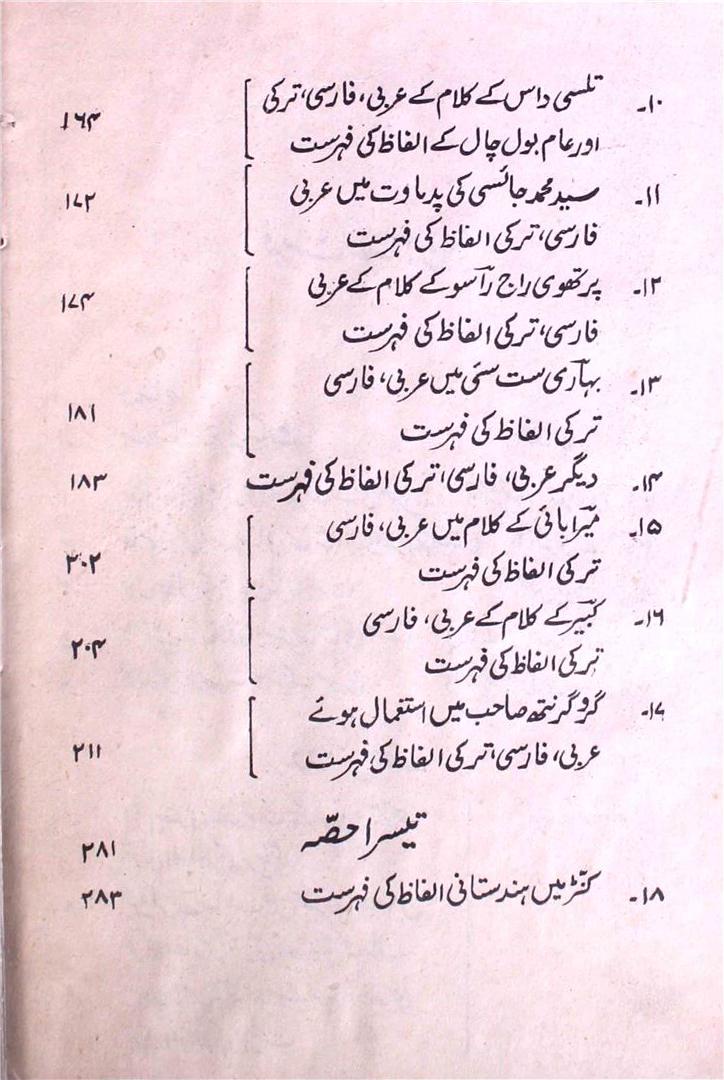 ۱۰۔ تلسی داس کے کلام کے عربی، فارسی، ترکی
اور عام بول چال کے الفاظ کی فہرست ۱۶۴
۱۱۔ سید محمد جائسی کی پدماوت میں عربی
فارسی، ترکی الفاظ کی فہرست ۱۷۲
۱۲۔ پرتھوی راج راسو کے کلام کے عربی
فارسی، ترکی الفاظ کی فہرست ۱۷۴
۱۳۔ بہاری ست سئی میں عربی، فارسی
ترکی الفاظ کی فہرست ۱۸۱
۱۴۔ دیگر عربی، فارسی، ترکی الفاظ کی فہرست ۱۸۳
۱۵۔ میرا بائی کے کلام میں عربی، فارسی
ترکی الفاظ کی فہرست ۳۰۲
۱۶۔ کبیر کے کلام کے عربی، فارسی
ترکی الفاظ کی فہرست ۲۰۴
۱۷۔ گرو گرنتھ صاحب میں استعمال ہوئے
عربی، فارسی، ترکی الفاظ کی فہرست ۲۱۱
تیسرا حصّہ ۲۸۱
۱۸۔ کنڑ میں ہندستانی الفاظ کی فہرست ۲۸۳